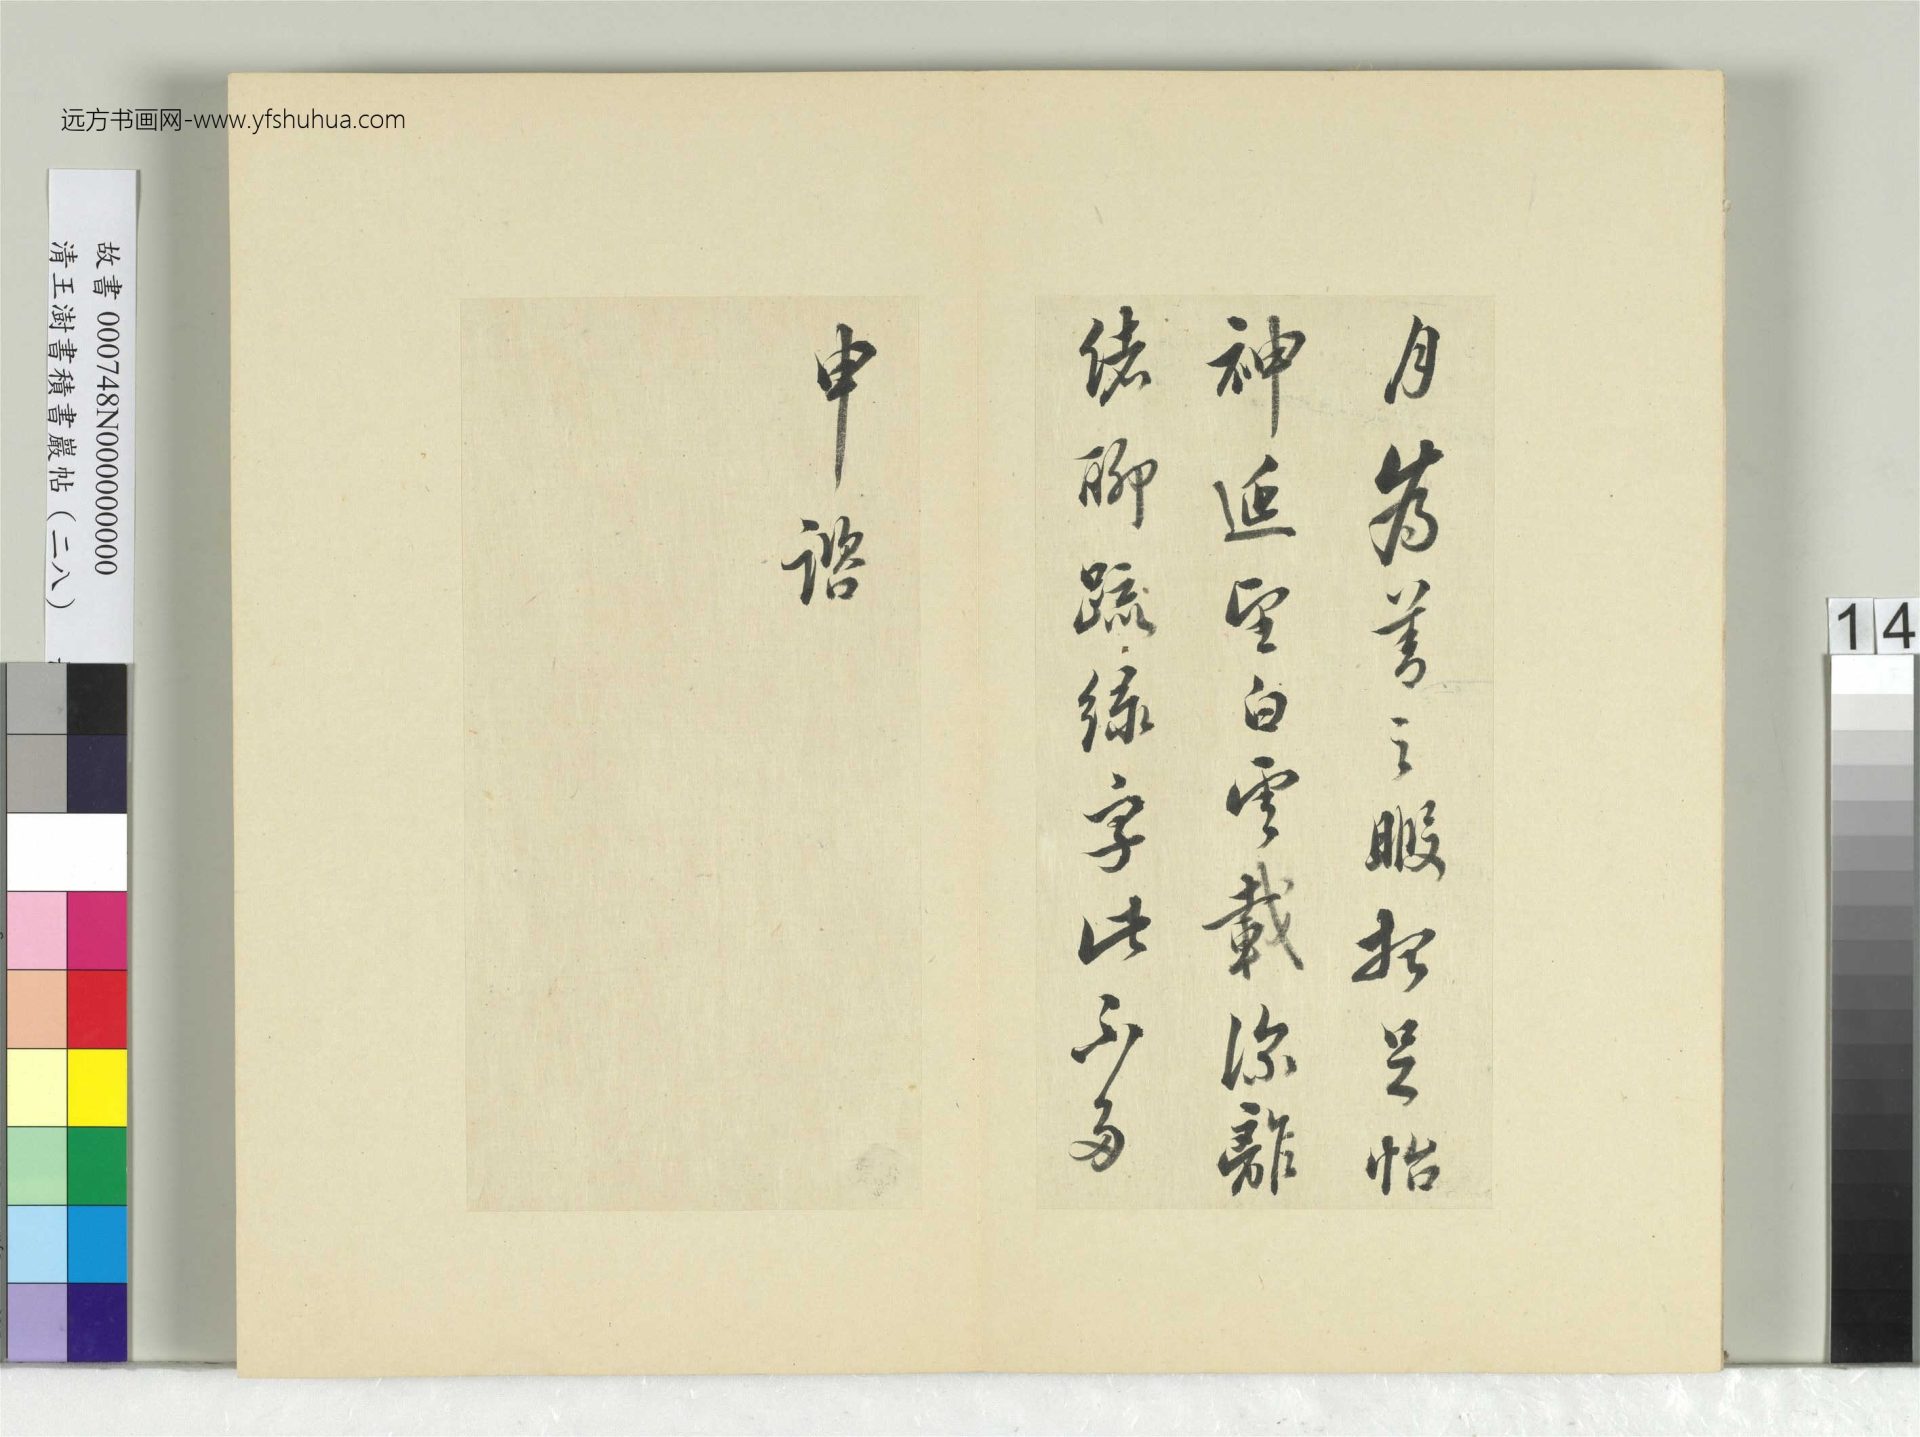 远方书画网-www.yfshuhua.com
故書 000748N000000000
清王澍書積書巖帖（二八）
14
月為善之暇想足怡
神遥望白雲載深離
緒聊疏綠字此不多
申諮